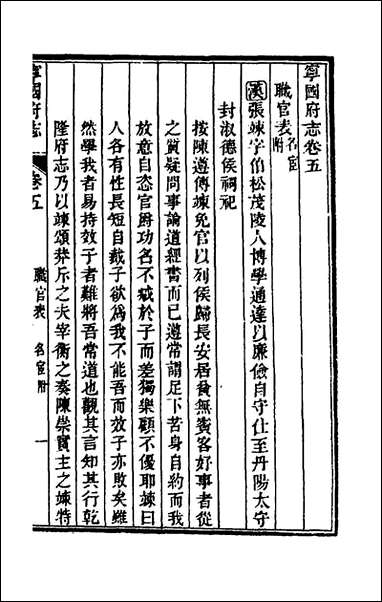 寧國府志卷五
職官表 名宦附
漢張竦字伯松茂陵人博學通達以廉儉自守仕至丹陽太守
封淑德侯祠祀
按陳遵傳竦免官以列侯歸長安居貧無賓客好事者從
之質疑問事論道經書而已遵常謂足下苦身自約而我
放意自恣官爵功名不減於子而差獨樂顧不優耶竦曰
人各有性長短自裁子欲為我不能吾而效子亦敗矣雖
然學我者易持效子者難將吾常道也觀其言知其行乾
隆府志乃以竦頌莽斥之夫宰衡之奏陳崇實主之竦特
寧國府志 卷五 職官表 名宦附 一